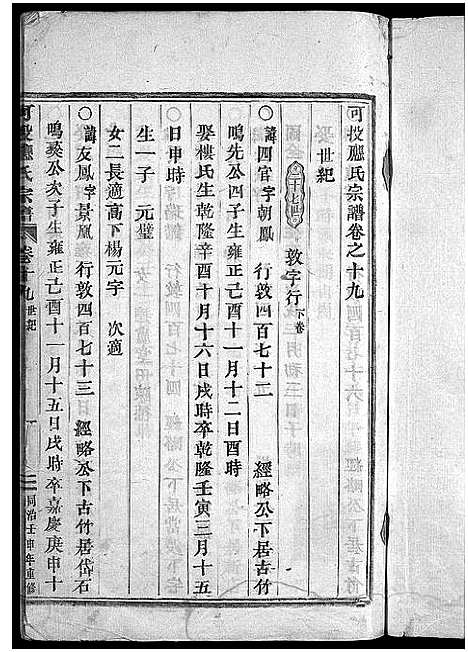 可投應氏宗譜卷之十九
世紀
三十七世 敦字行下卷
○諱四官字朝鳳 行敦四百七十二 經略公下居古竹
鳴先公四子生雍正己酉十一月十二日酉時
娶樓氏生乾隆辛酉十月十六日戌時卒乾隆壬寅三月十五
日申時
生一子 元璧
女二長適高下楊元字 次適
○諱友鳳字景鳳 行敦四百七十三 經略公下古竹居岱石
鳴獎公次子生雍正己酉十一月十五日戌時卒嘉慶庚申十
可投應氏宗譜 卷十九 世紀 一 同治壬申年重修